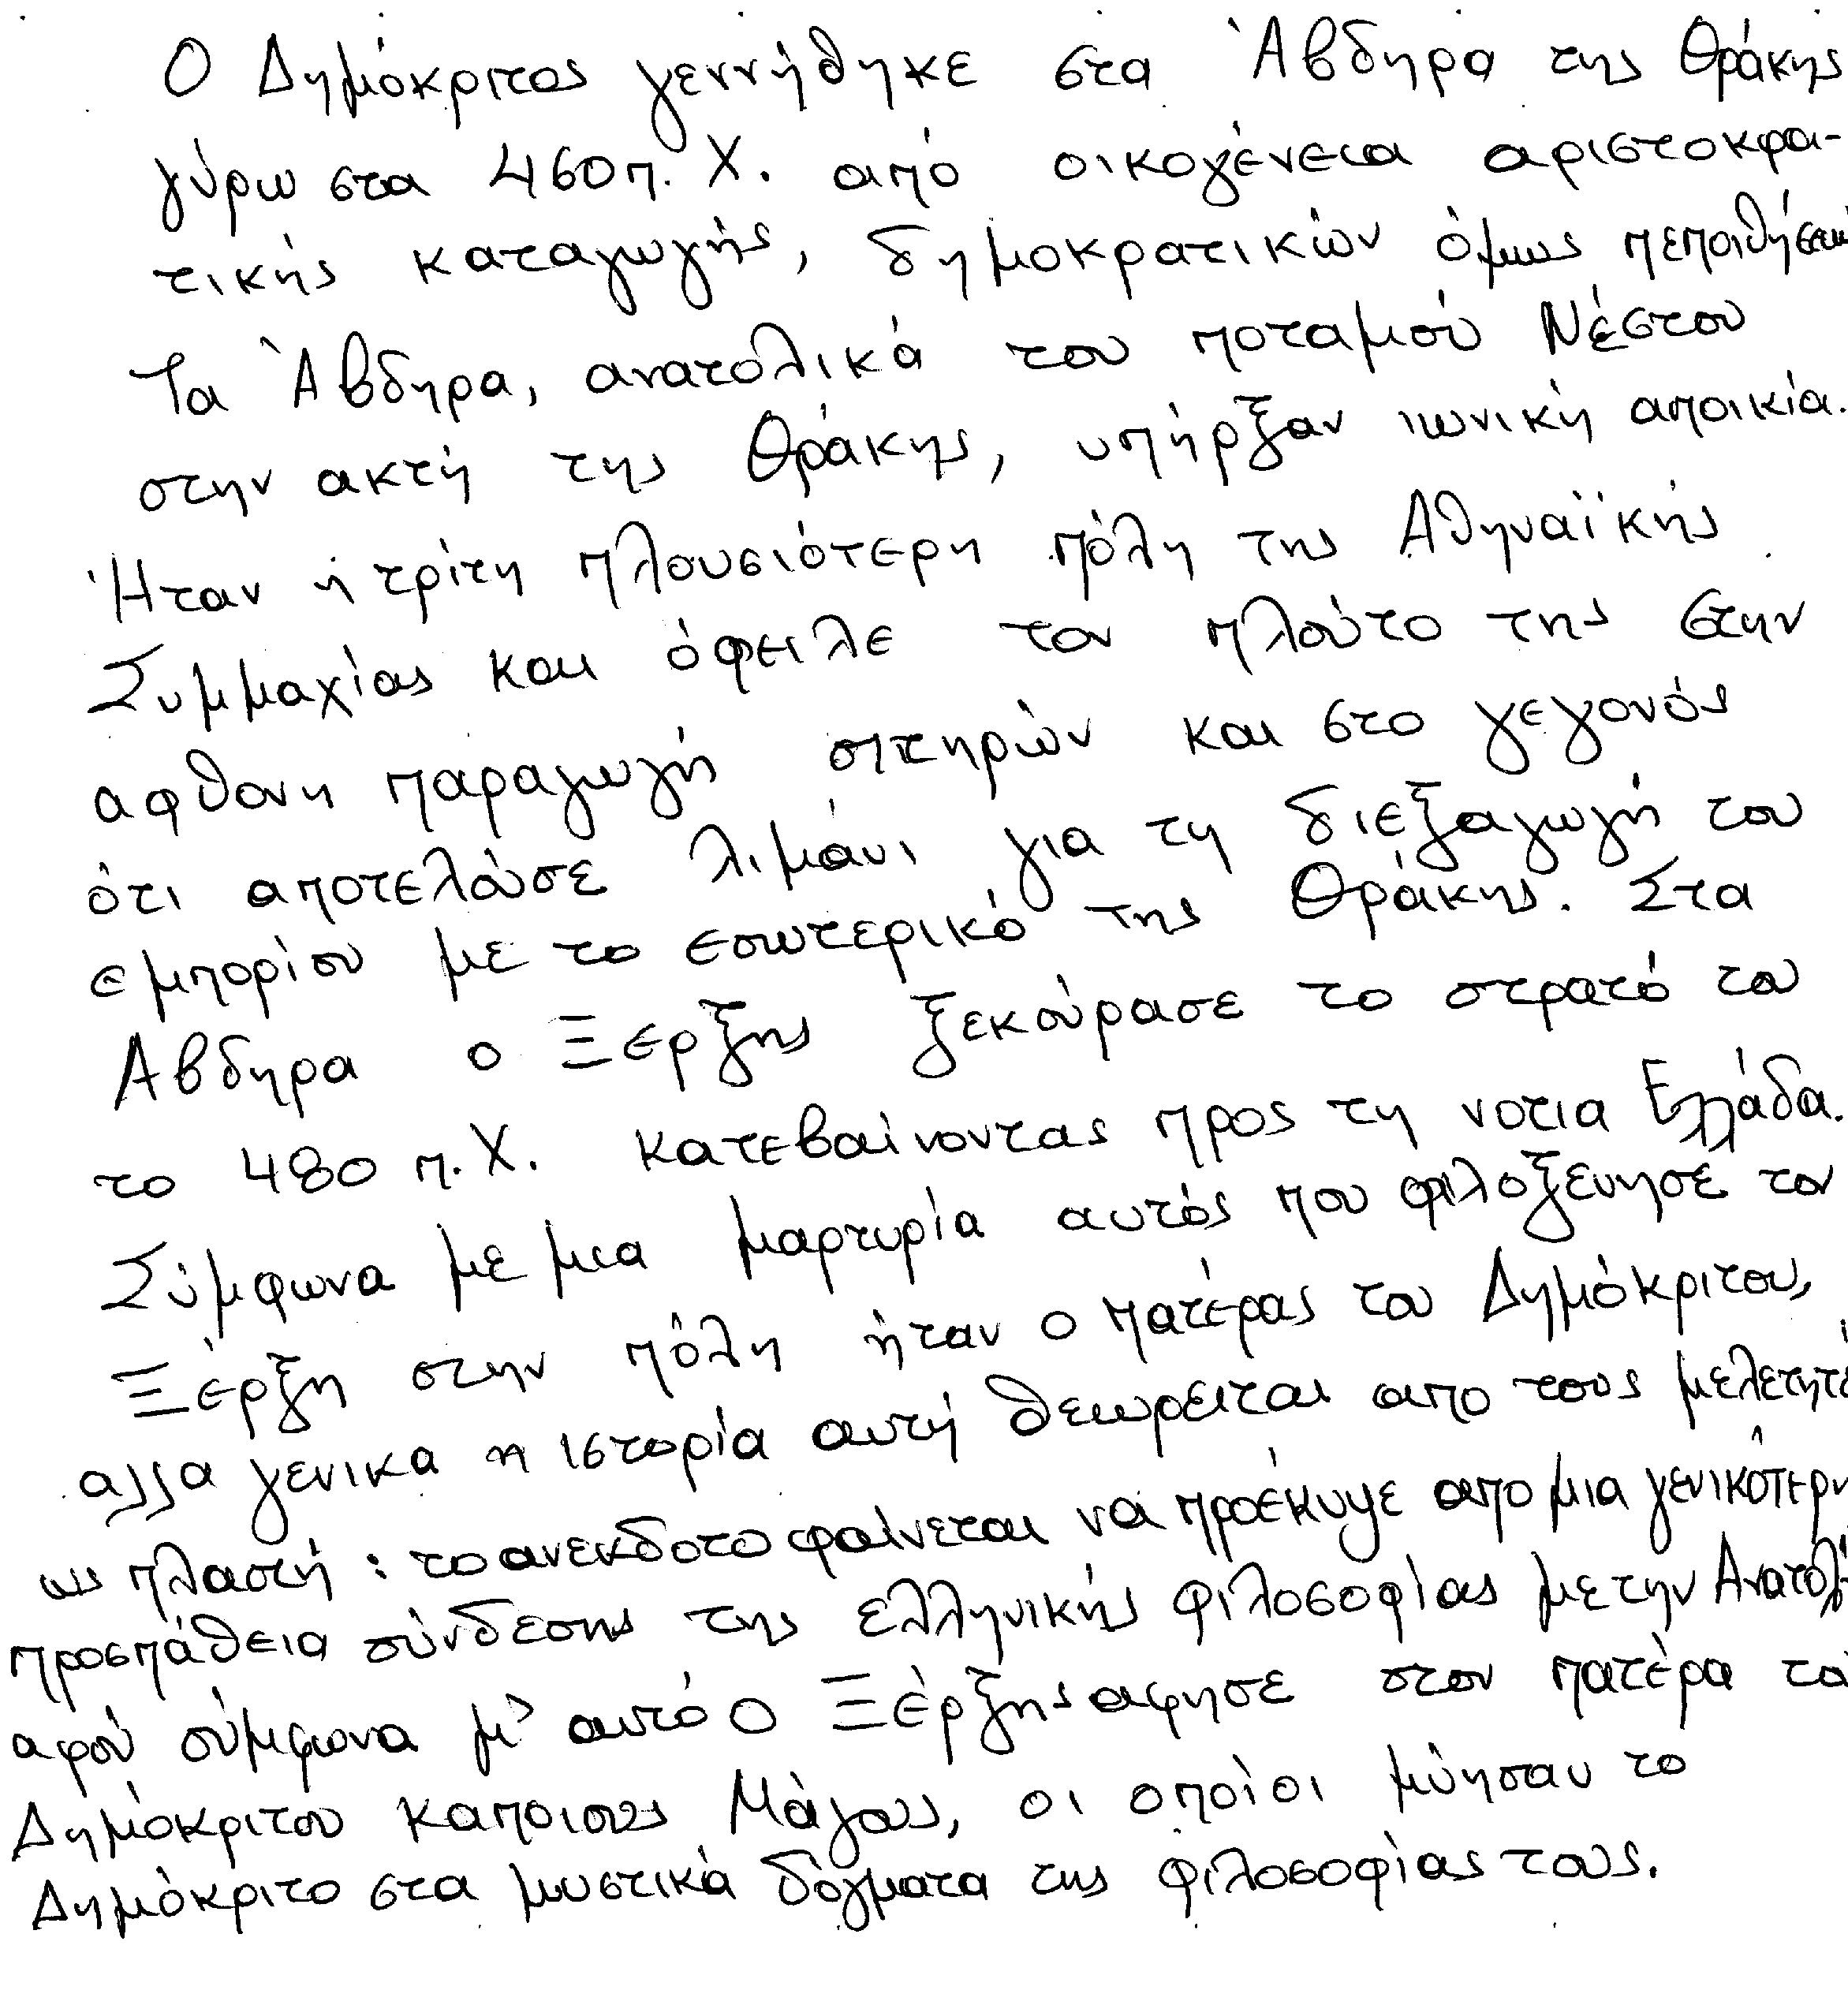 Ο Δημόκριτος γεννήθηκε στα Άβδηρα της Θράκης
γύρω στα 460 π. Χ. από οικογένεια αριστοκρα-
τικής καταγωγής, δημοκρατικών όμως πεποιθήσεων
Τα Άβδηρα, ανατολικά του ποταμού Νέστου
στην ακτή της Θράκης, υπήρξαν ιωνική αποικία.
Ήταν ή τρίτη πλουσιότερη πόλη της Αθηναϊκής
Συμμαχίας και όφειλε τον πλούτο της στην
αφθονη παραγωγή σιτηρών και στο γεγονός
ότι αποτελούσε λιμάνι για τη διεξαγωγή του
εμπορίου με το εσωτερικό της Θράκης. Στα
Αβδηρα ο Ξερξης ξεκούρασε το στρατό του
το 480 π. Χ. κατεβαίνοντας προς τη νοτια Ελλάδα.
Σύμφωνα με μια μαρτυρία αυτός που φιλοξενησε τον
Ξέρξη στην πόλη ήταν ο πατέρας του Δημόκριτου,
αλλα γενικα η ιστορία αυτή θεωρειται απο τους μελετητέ
ως πλαστή : το ανεκδοτο φαίνεται να προέκυψε απο μια γενικότερη
προσπάθεια σύνδεσης της ελληνικής φιλοσοφίας με την Ανατολή
αφού σύμφωνα μ' αυτό ο Ξέρξης αφησε στον πατέρα του
Δημόκριτου καποιους Μάγους, οι οποίοι μύησαν το
Δημόκριτο στα μυστικά δόγματα της φιλοσοφίας τους.